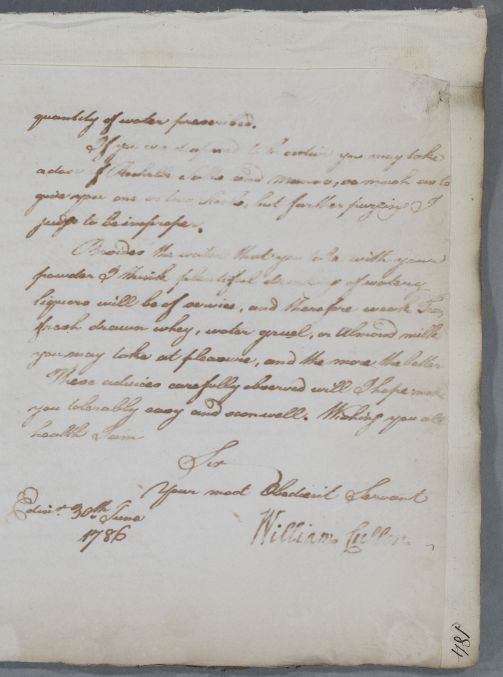 quantity of water prescribed.
If you are disposed to be costive you may take
a dose of Rochelle Salts and Manna, as much as to
give you one or two stools, but further purging I
judge to be improper.
Besides the water that you take with your
powder I think plentiful drinking of watery
liquors will be of service, and therefore weak Tea,
fresh drawn whey, water gruel, or Almond milk
you may take at pleasure, and the more the better
These advices carefully observed will I hope make
you tolerably easy and soon well. Wishing you all
health I am
Sir
Your most Obedient Servant
Edinr. 30th June
1786
William Cullen